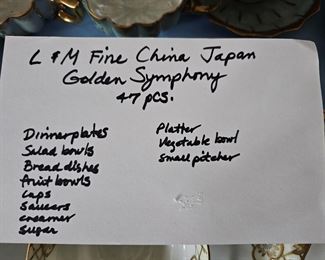 L & M Fine China Japan
Golden Symphony
47 pcs.
Dinnerplates
Salad bowls
Bread dishes
fruit bowls
Cups
Saucers
creamer
Sugar
Platter
Vegetable bowl
Small pitcher